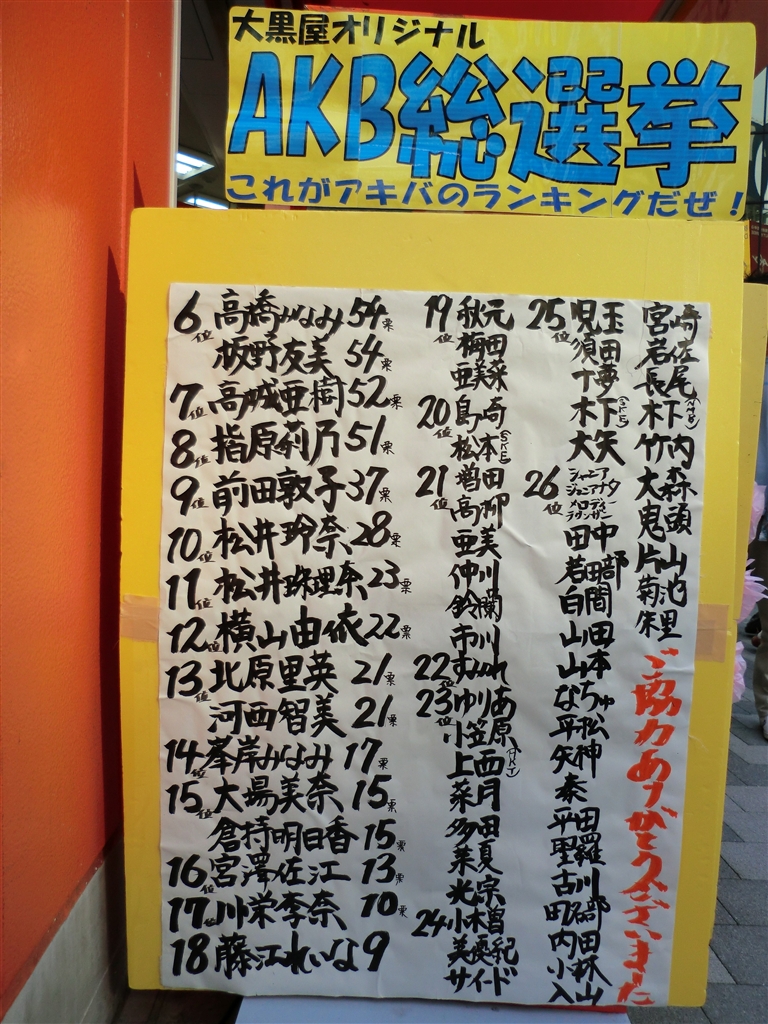 大黒屋オリジナル
AKB総選挙
これがアキバのランキングだぜ!
6位 高橋みなみ 54票
板野友美 54票
7位 高城亜樹 52票
8位 指原莉乃 51票
9位 前田敦子 37票
10位 松井玲奈 28票
11位 松井珠理奈 23票
12位 横山由依 22票
13位 北原里英 21票
河西智美 21票
14位 峯岸みなみ 17票
15位 大場美奈 15票
倉持明日香 15票
16位 宮澤佐江 13票
17位 川栄李奈 10票
18 藤江れいな 9
19位 秋元
梅田
亜美菜
20位 島崎
松本(SKE)
21位 増田
高柳
亜美
仲川
鈴蘭
市川
22位 すみれ
23位 ゆりあ
小笠原
上西
菜月
多田
菜夏
光宗
24 小木曽
美優紀
サイード
25位 児玉
須田
十夢
木下(SKE)
大矢
26位
田中
若田部
白間
山田
山本
なちゅ
平松
矢神
奏
平田
野
古川
町
内田
小林
入山
宮崎
岩佐
長尾
木下(NMB)
竹内
大森
鬼頭
片山
菊池
朱里
ご協力ありがとうございました